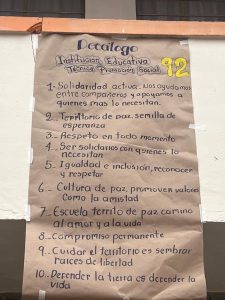 Decalogo
Institución Educativa
Técnica Promoción Social
92
1- Solidaridad activa. Nos ayudamos
entre compañeros y apoyamos a
quienes mas lo necesitan.
2- Territorio de paz, semilla de
esperanza
3- Respeto en todo momento
4- Ser solidarios con quienes lo
necesitan
5- Igualdad e inclusión, reconocer
y respetar
6- Cultura de paz, promover valores
como la amistad
7- Escuela territo de paz camino
al amor y a la vida
8- Compromiso permanente
9- Cuidar el territorio es sembrar
raíces de libertad
10- Defender la tierra es defender la
vida